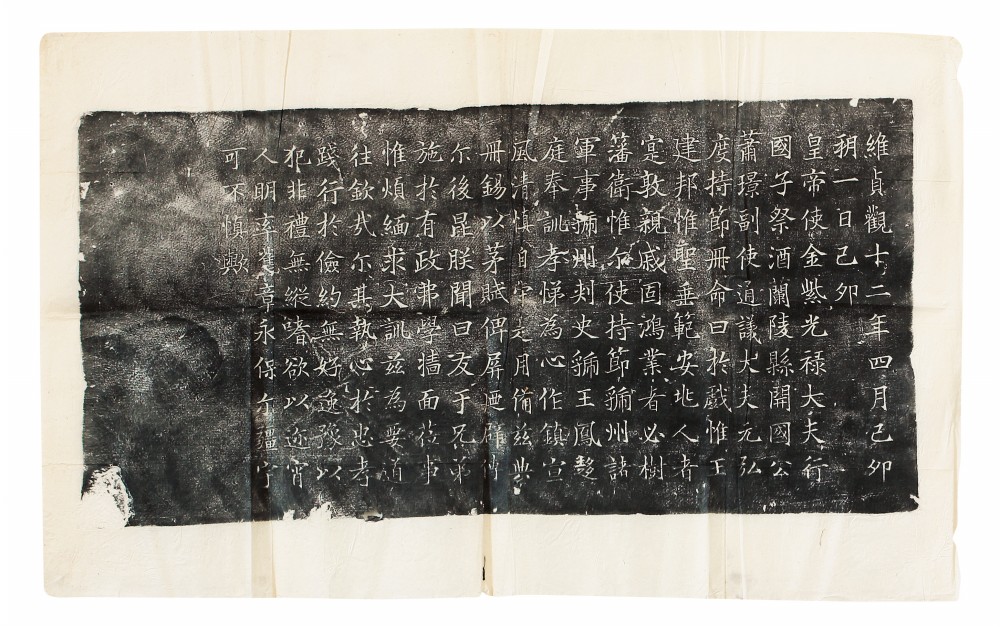 維貞觀十二年四月己卯
朔一日己卯
皇帝使金紫光禄大夫行
國子祭酒蘭陵縣開國公
蕭璟副使通議大夫元弘
度持節冊命曰於戲惟王
建邦惟聖垂範安兆人者
寔敦親戚固鴻業者必樹
藩衛惟尔使持節虢州諸
軍事虢州刾史虢王鳳
庭奉訓孝悌為心作鎮宣
風清慎自守是用備兹典
冊錫以茅賦俾屏迺辟傳
尔後昆朕聞曰友于兄弟
施於有政弗學牆面莅事
惟煩緬求大訓兹為要道
往欽哉尔其執心於忠孝
踐行於儉約無好逸豫以
犯非禮無縱嗜欲以迩宵
人明率舊章永保尓疆宇
可不慎歟